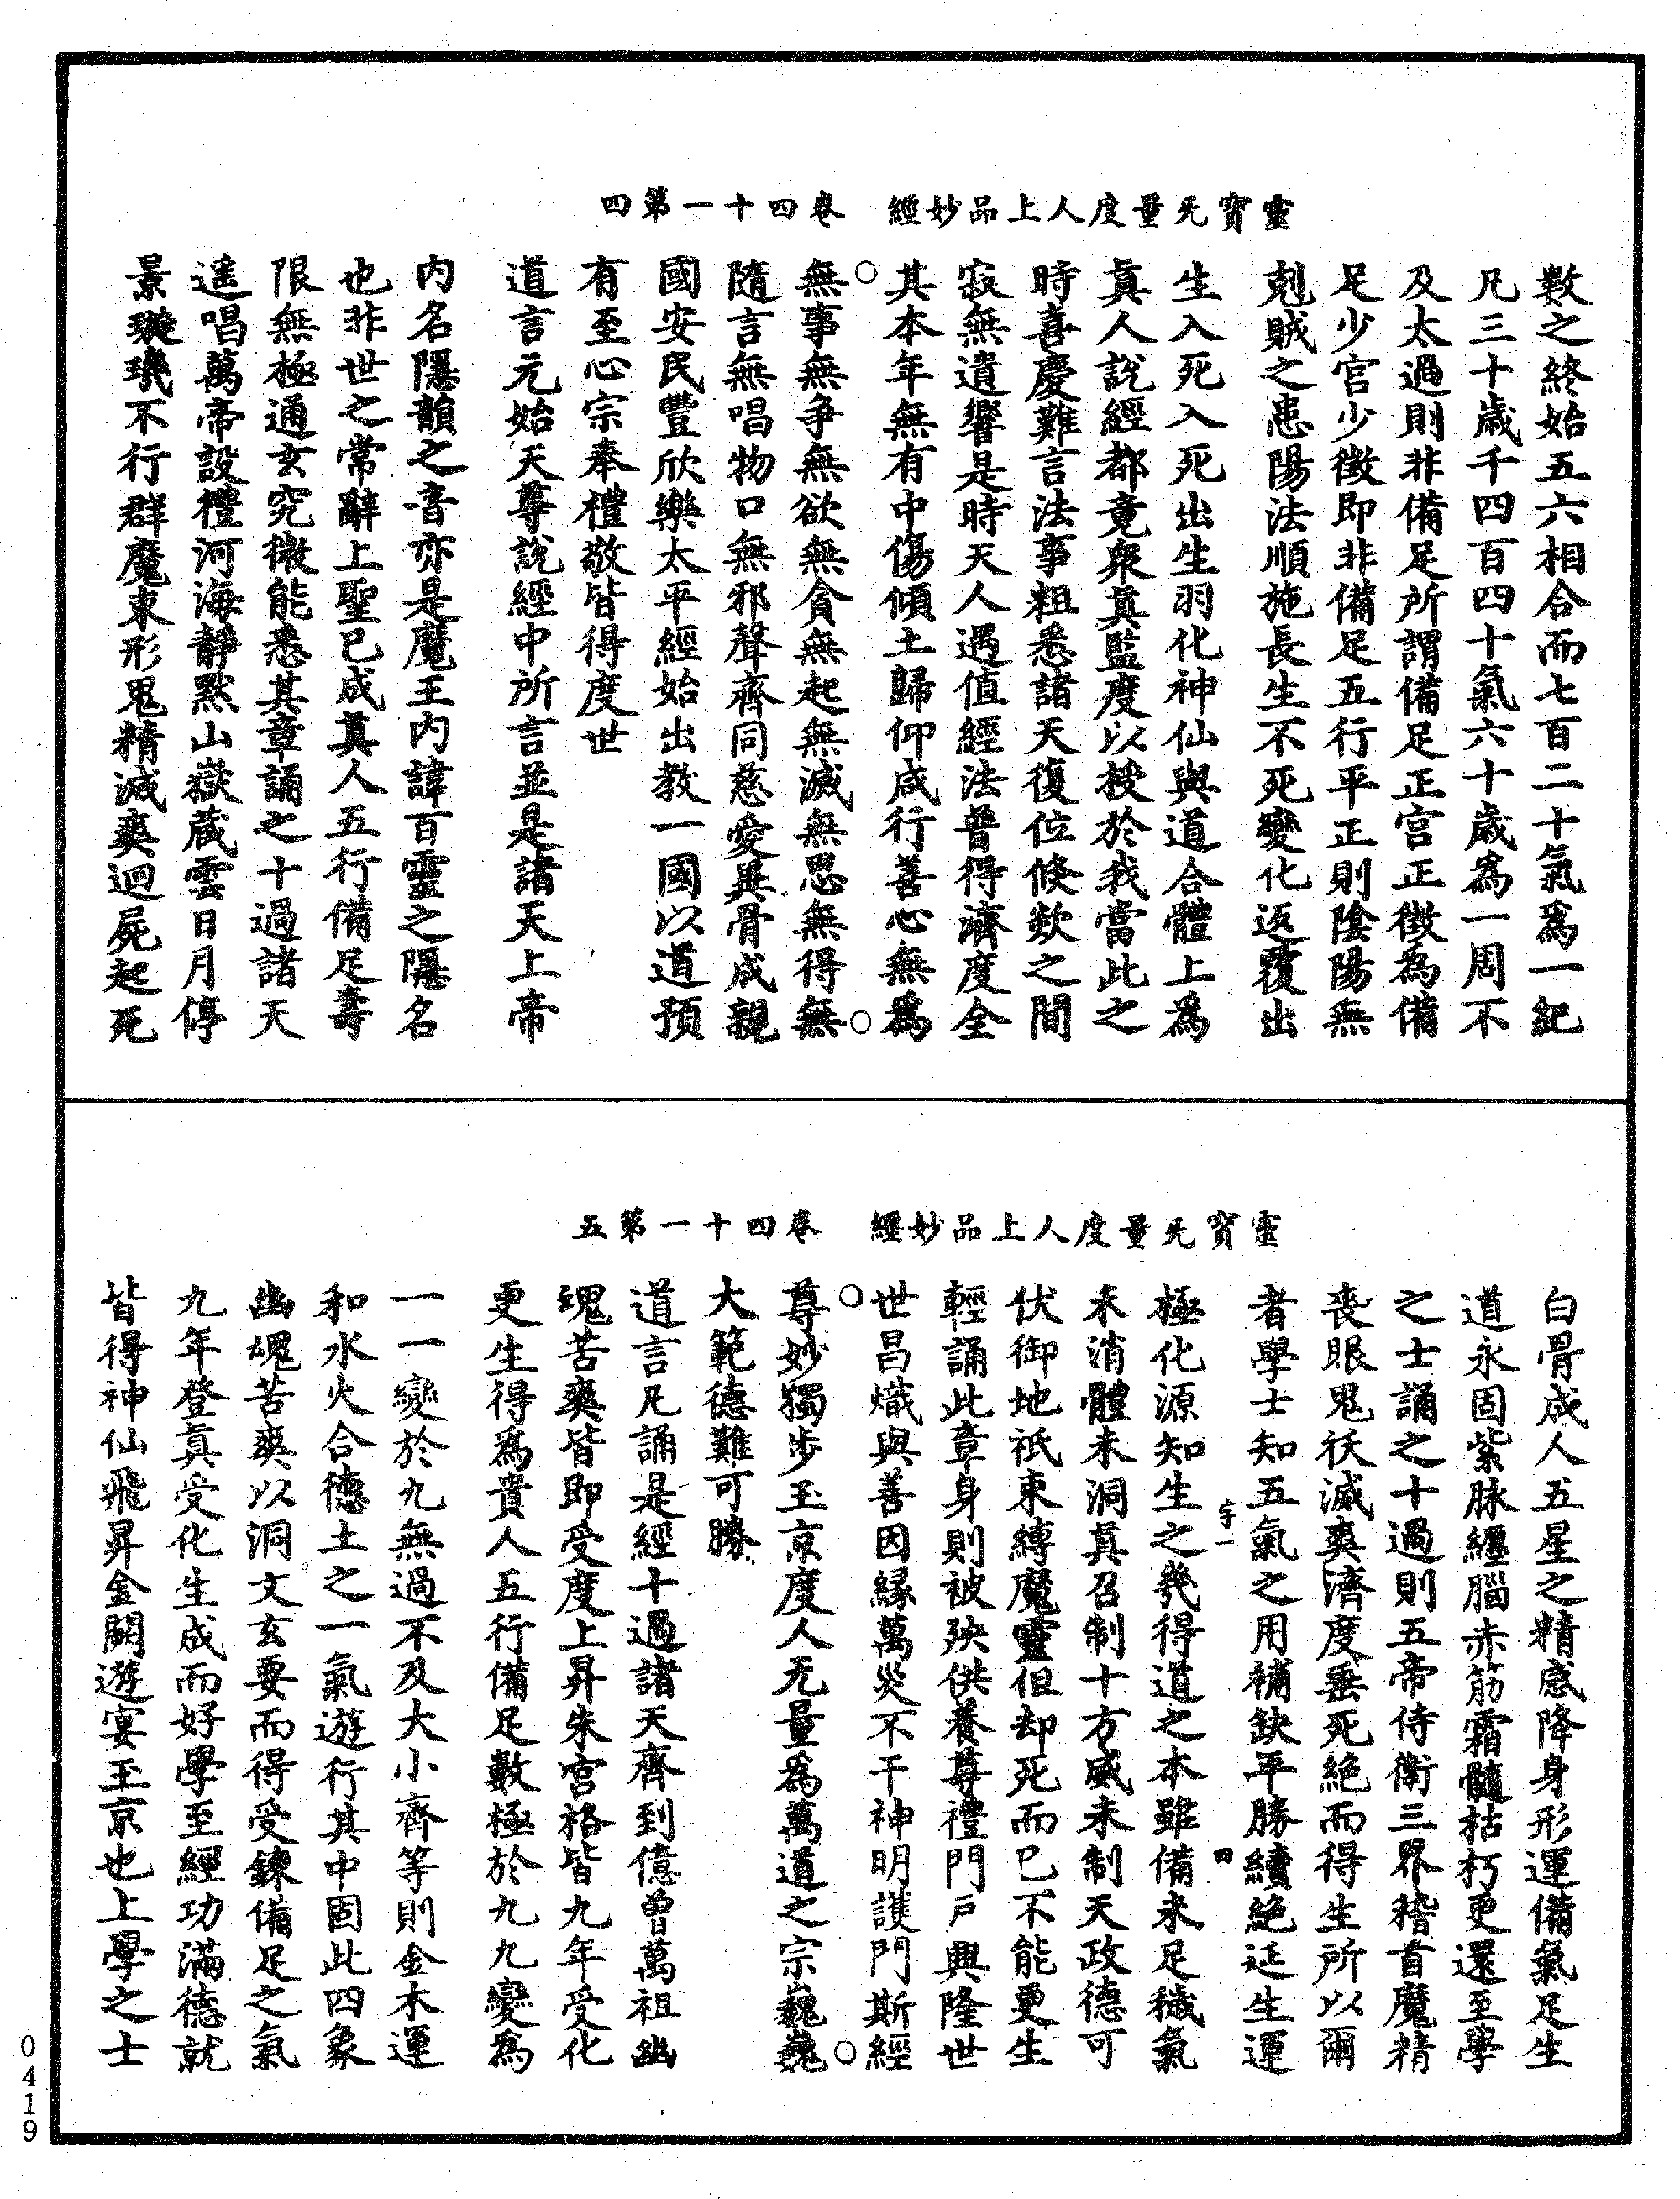 靈寶无量度人上品妙經　卷四十一第四
數之終始五六相合而七百二十氣爲一紀
凡三十歲千四百四十氣六十歲爲一周不
及太過則非備足所謂備足正宮正徵爲備
足少宮少徵即非備足五行平正則陰陽無
剋賊之患陽法順施長生不死變化返覆出
生入死入死出生羽化神仙與道合體上爲
眞人說經都竟衆眞監度以授於我當此之
時喜慶難言法事粗悉諸天復位倏欻之間
寂無遺響是時天人遇值經法普得濟度全
其本年無有中傷傾土歸仰咸行善心無爲
○無事無爭無欲無貪無起無滅無思無得無○
隨言無唱物口無邪聲齊同慈愛異骨成親
國安民豐欣樂太平經始出教一國以道預
有至心宗奉禮敬皆得度世
道言元始天尊說經中所言並是諸天上帝
内名隱韻之音亦是魔王内諱百靈之隱名
也非世之常辭上聖已成眞人五行備足壽
限無極通玄究微能悉其章誦之十過諸天
遥唱萬帝設禮河海靜默山嶽藏雲日月停
景璇璣不行群魔束形鬼精滅爽迴屍起死
靈寶无量度人上品妙經　卷四十一第五
白骨成人五星之精感降身形運備氣足生
道永固紫脉纏腦赤筋霜髓枯朽更還至學
之士誦之十過則五帝侍衛三界稽首魔精
喪眼鬼祅滅爽濟度垂死絕而得生所以爾
者學士知五氣之用補缺平勝續絕延生運
字一　四
極化源知生之幾得道之本雖備未足穢氣
未消體未洞眞召制十方威未制天政德可
伏御地祇束縛魔靈但却死而已不能更生
輕誦此章身則被殃供養尊禮門戶興隆世
世昌熾與善因緣萬災不干神明護門斯經
○尊妙獨步玉京度人无量爲萬道之宗巍巍○
大範德難可勝
道言凡誦是經十過諸天齊到億曾萬祖幽
魂苦爽皆即受度上昇朱宮格皆九年受化
更生得爲貴人五行備足數極於九九變爲
一一變於九無過不及大小齊等則金木運
和水火合德土之一氣遊行其中固此四象
幽魂苦爽以洞文玄要而得受鍊備足之氣
九年登眞受化生成而好學至經功滿德就
皆得神仙飛昇金闕遊宴玉京也上學之士
0419